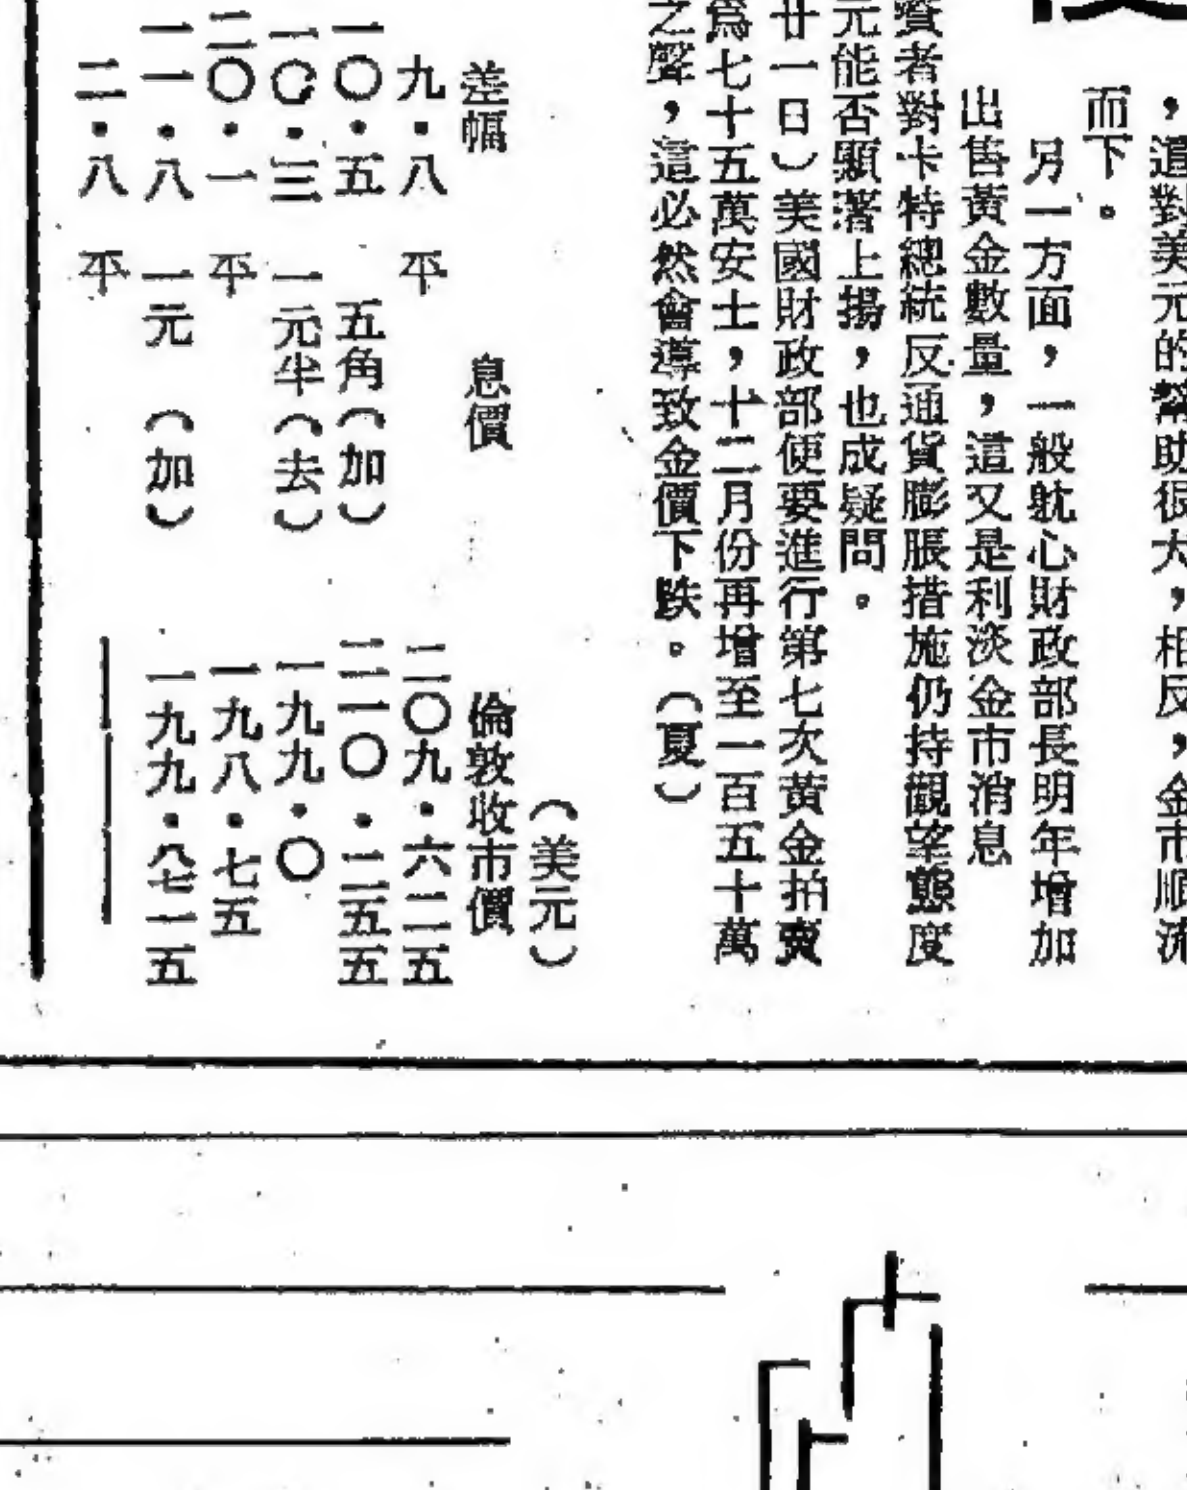 ，這對美元的幫助很大，相反，金市順流
而下。
另一方面，一般躭心財政部長明年增加
出售黃金數量，這又是利淡金市消息
資者對卡特總統反通貨膨脹措施仍持觀望態度
元能否顯著上揚，也成疑問。
廿一日）美國財政部便要進行第七次黃金拍賣
爲七十五萬安士，十二月份再增至一百五十萬
之聲，這必然會導致金價下跌。（夏）
（美元）
差幅 息價 倫敦收市價
九・八 平 二〇九・六二五
一〇・五 五角（加） 二一〇・二五五
一〇・三 一元半（去） 一九九・〇
二〇・一 平 一九八・七五
一一・八 一元（加） 一九九・八七一五
二・八 平